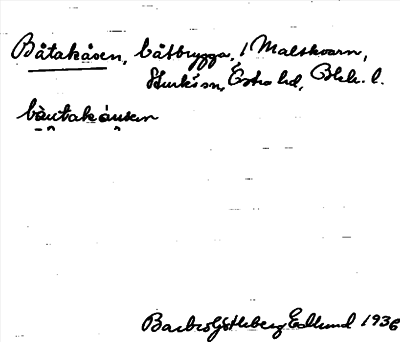 Båtakåsen, båtbrygga, i Malekvarn,
Sturkö sn, Östra hd, Blek. l.
båutakåusen
Barbro Götheberg Edlund 1936